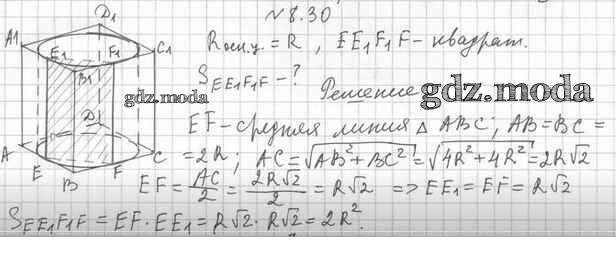 №8.30
D1
A1 E1 F1 C1
B1
D
A E F C
B
Rосн.ц. = R , EE1F1F - квадрат.
SEE1F1F - ?
Решение
gdz.moda
gdz.moda
EF - средняя линия Δ ABC; AB = BC =
= 2R; AC = √AB² + BC² = √4R² + 4R² = 2R√2
EF = AC/2 = 2R√2/2 = R√2 => EE1 = EF = R√2
SEE1F1F = EF · EE1 = R√2 · R√2 = 2R².